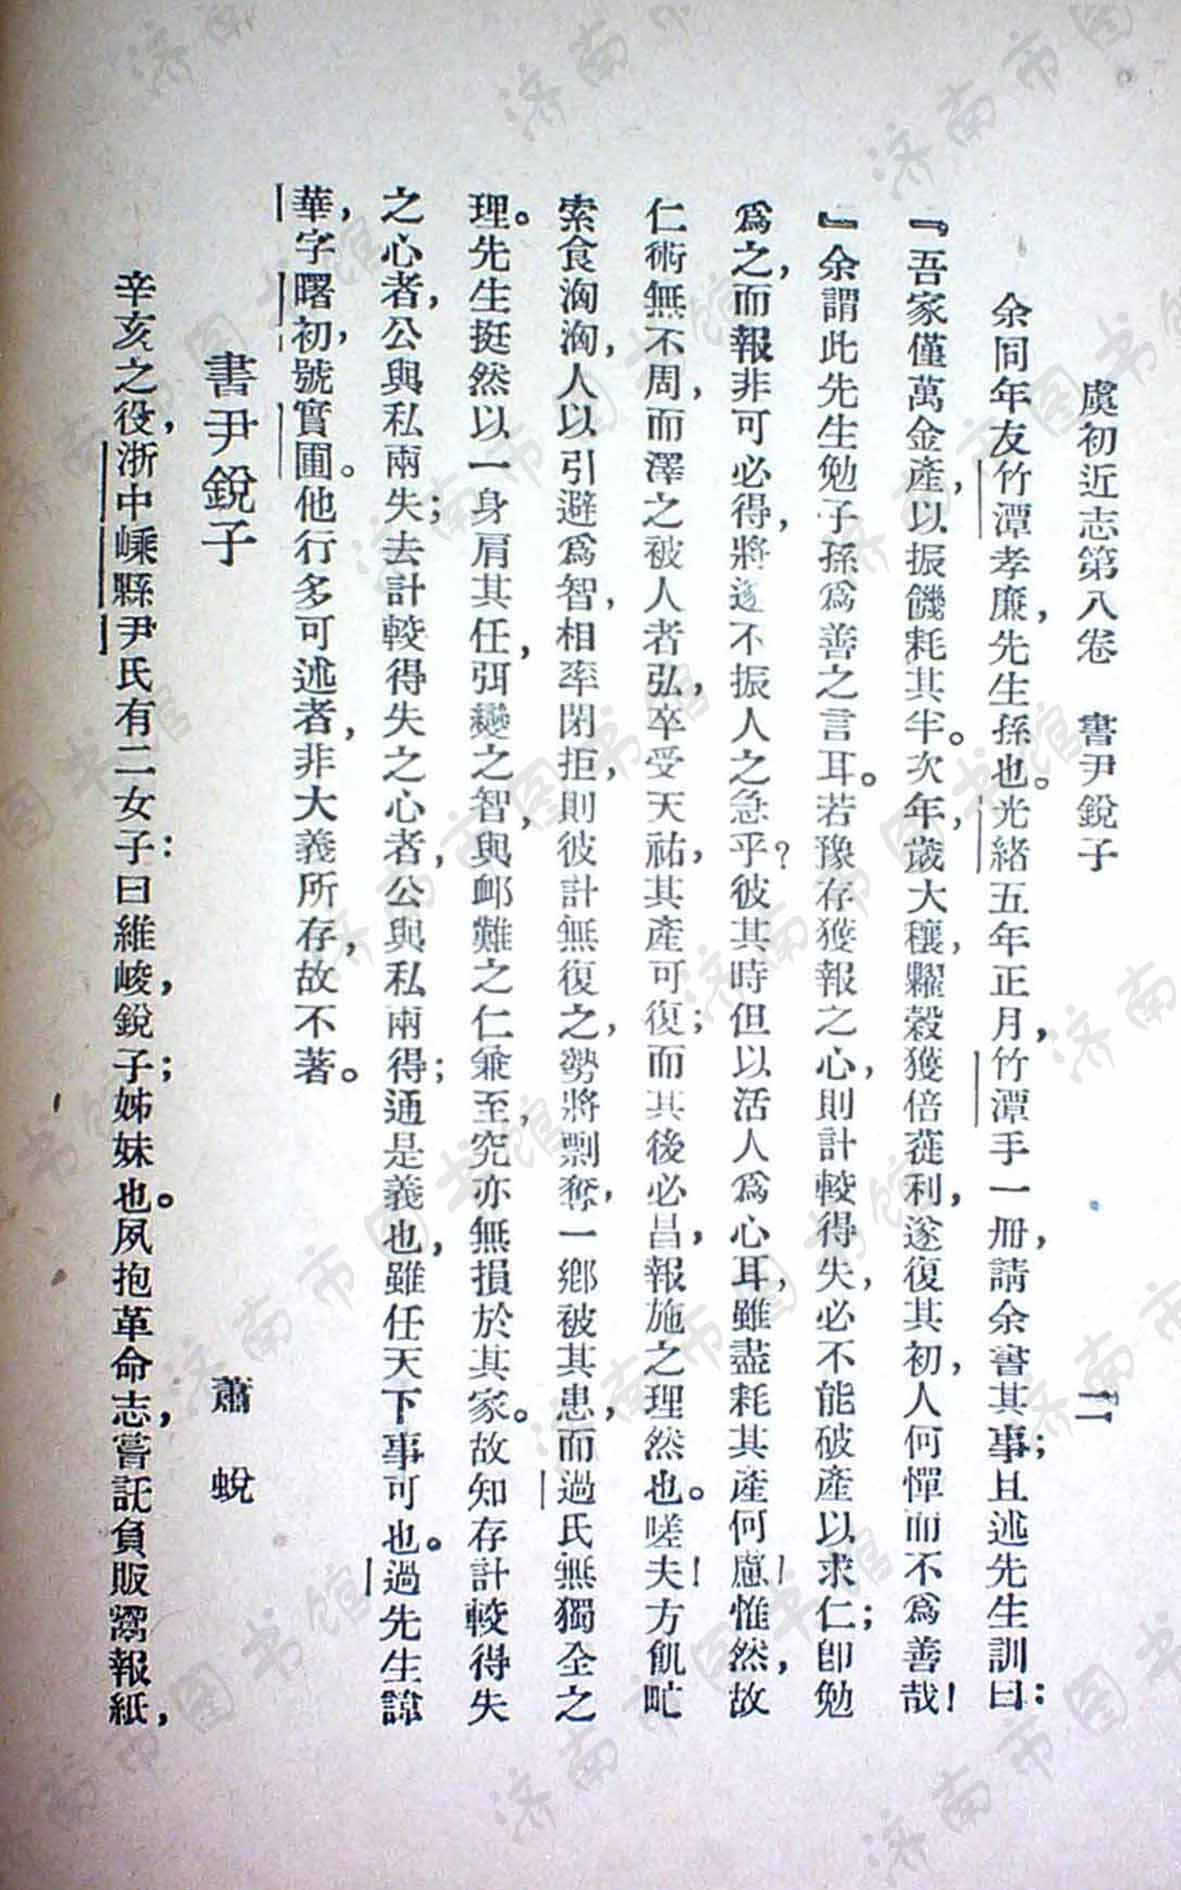 虞初近志第八卷　書尹銳子　二
余同年友竹潭孝廉，先生孫也。光緒五年正月，竹潭手一冊，請余書其事；且述先生訓曰：
『吾家僅萬金產，以振饑耗其半。次年，歲大穰，糶穀獲倍蓰利，遂復其初，人何憚而不爲善哉！
』余謂此先生勉子孫爲善之言耳。若豫存獲報之心，則計較得失，必不能破產以求仁；卽勉
爲之，而報非可必得，將遂不振人之急乎？彼其時但以活人爲心耳，雖盡耗其產何慮！惟然，故
仁術無不周，而澤之被人者弘，卒受天祐，其產可復；而其後必昌，報施之理然也。嗟夫！方飢甿
索食洶洶，人以引避爲智，相率閉拒，則彼計無復之，勢將剽奪，一鄉被其患，而過氏無獨全之
理。先生挺然以一身肩其任，弭變之智，與卹難之仁兼至，究亦無損於其家。故知存計較得失
之心者，公與私兩失；去計較得失之心者，公與私兩得；通是義也，雖任天下事可也。過先生諱
華，字曙初，號實圃。他行多可述者，非大義所存，故不著。
書尹銳子　蕭蛻
辛亥之役，浙中嵊縣尹氏有二女子：曰維峻，銳子；姊妹也。夙抱革命志，嘗託負販鬻報紙，